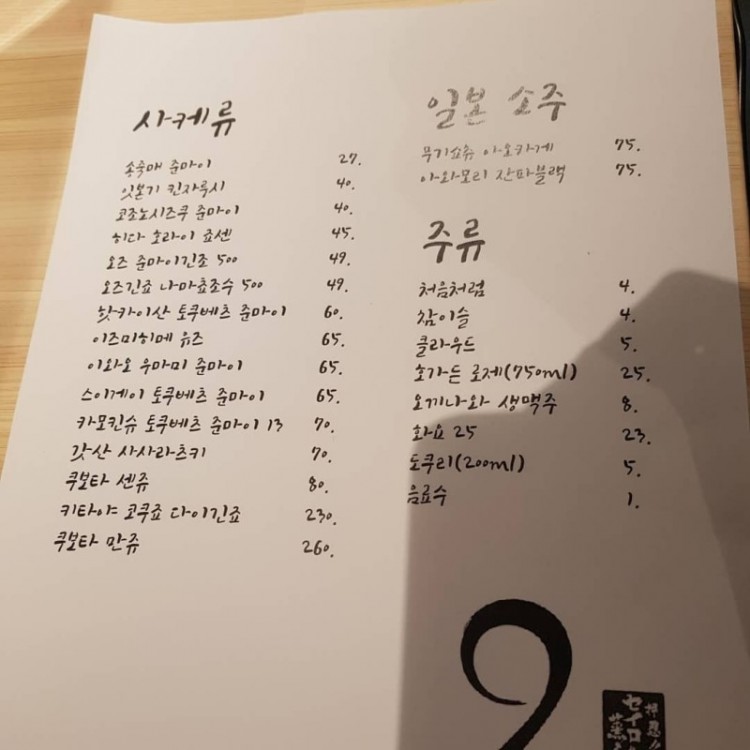 사케류
송죽매 준마이 27.
잇본기 킨자루시 40.
코조노시즈쿠 준마이 40.
히다 호라이 죠센 45.
오즈 준마이긴조 500 49.
오즈긴죠 나마쵸조수 500 49.
핫카이산 토쿠베츠 준마이 60.
이즈미히메 유즈 65.
이와오 우마미 준마이 65.
스이게이 토쿠베츠 준마이 65.
카모킨슈 토쿠베츠 준마이 13 70.
갓산 사사라츠키 70.
쿠보타 센쥬 80.
키타야 코쿠죠 다이긴죠 230.
쿠보타 만쥬 260.
일본 소주
무기쇼츄 아오카게 75.
아와모리 잔파블랙 75.
주류
처음처럼 4.
참이슬 4.
클라우드 5.
호가든 로제(750ml) 25.
오끼나와 생맥주 8.
화요 25 23.
도쿠리(200ml) 5.
음료수 1.
セイロ
蒸